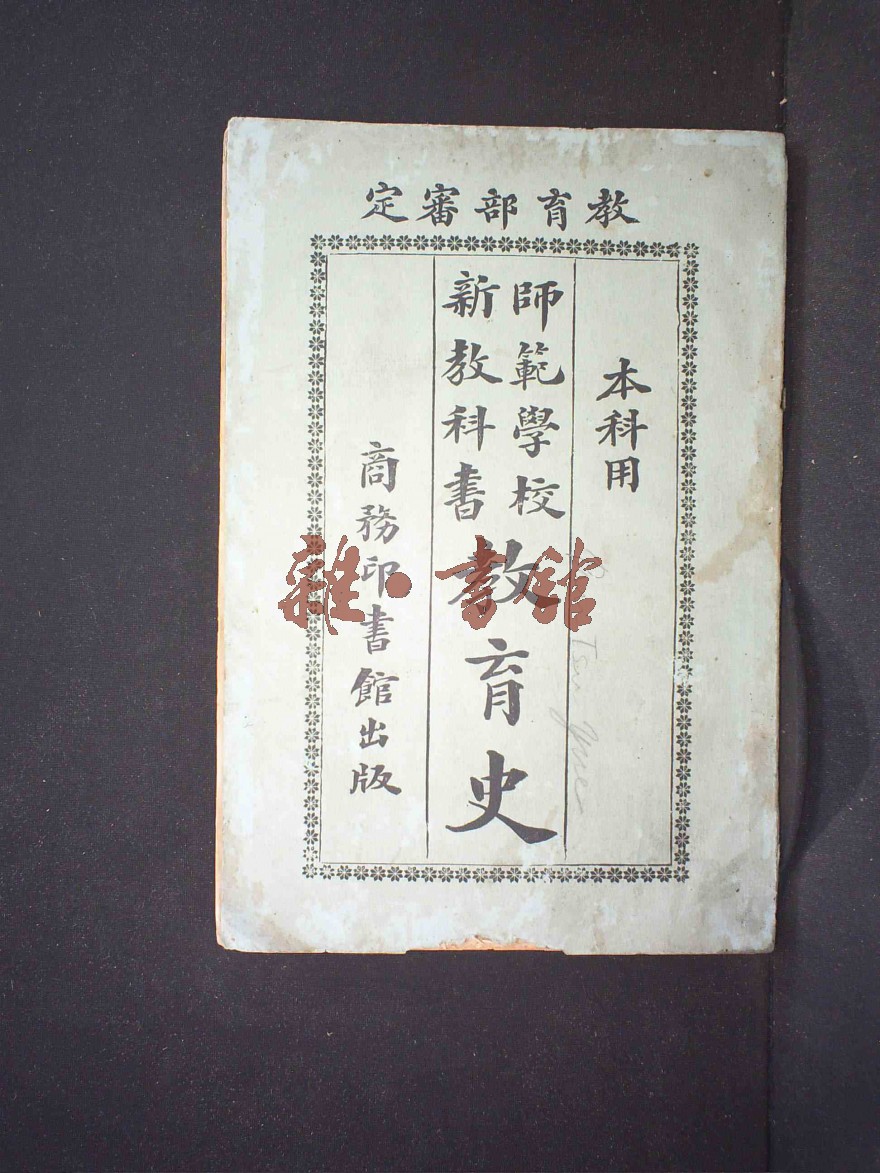 教育部審定
本科用
師範學校
新教科書
教育史
商務印書館出版
雜·書館